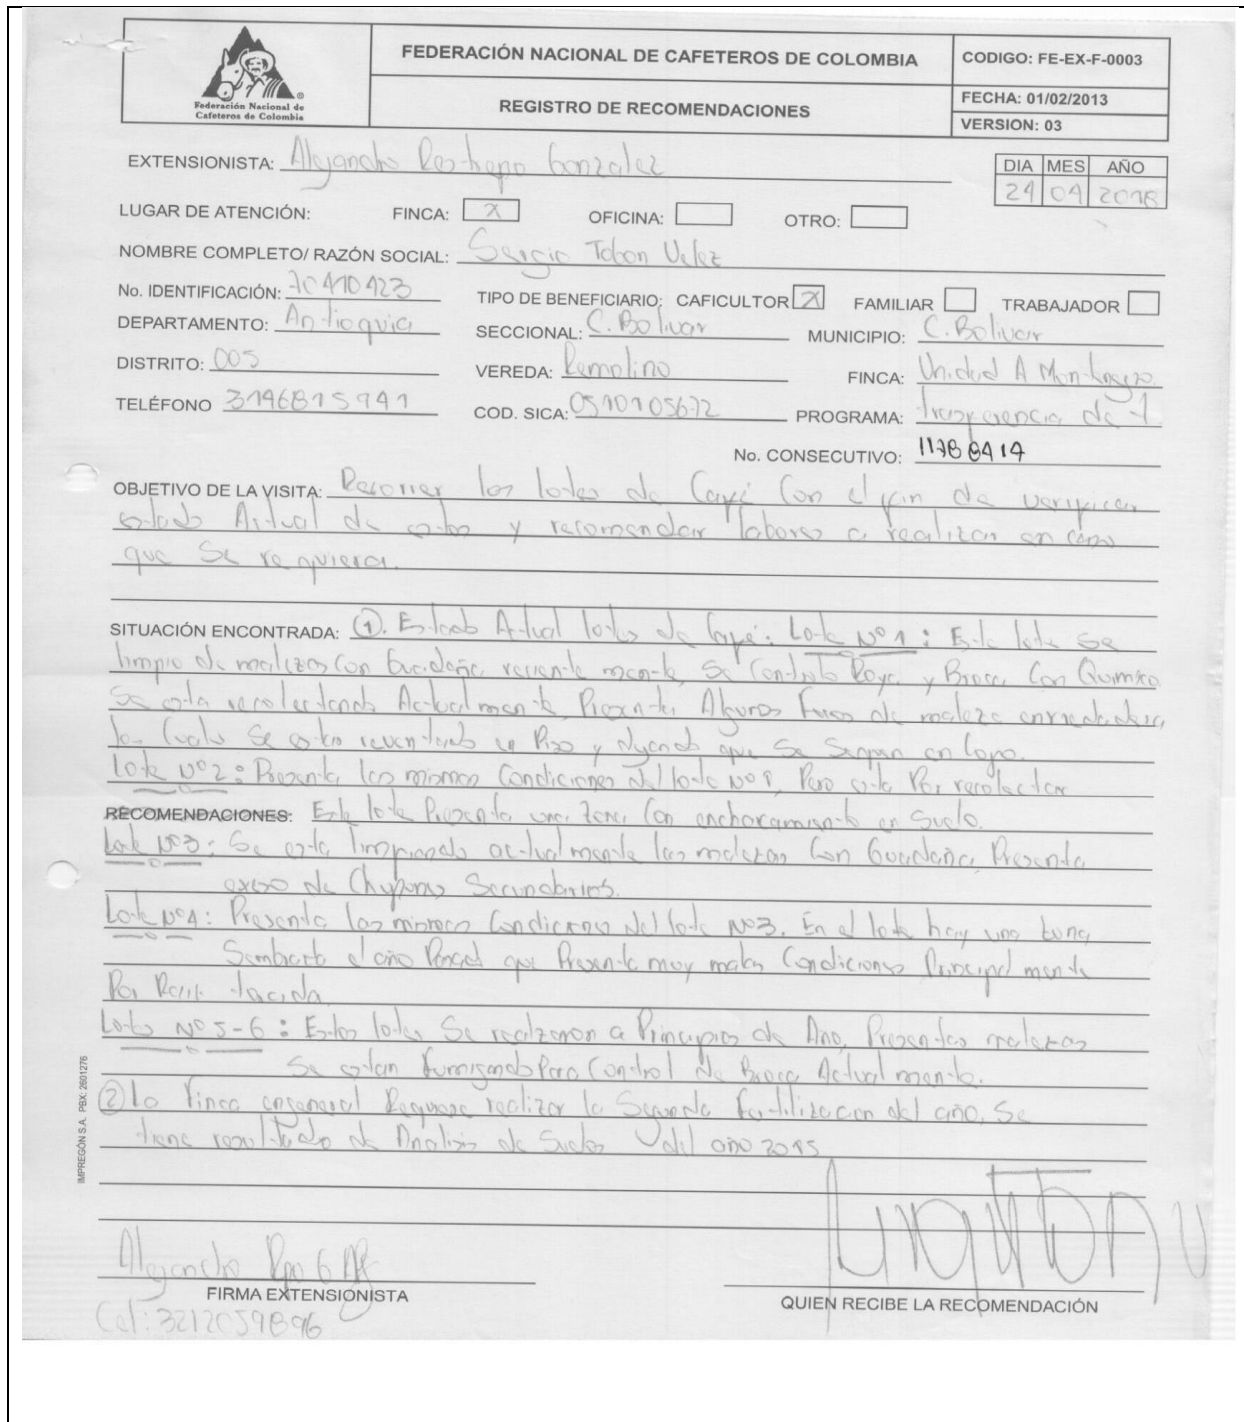 Federación Nacional de
Cafeteros de Colombia
FEDERACIÓN NACIONAL DE CAFETEROS DE COLOMBIA
REGISTRO DE RECOMENDACIONES
CODIGO: FE-EX-F-0003
FECHA: 01/02/2013
VERSION: 03
EXTENSIONISTA: Alejandro Restrepo Gonzalez
DIA MES AÑO
24 04 2018
LUGAR DE ATENCIÓN: FINCA: X OFICINA: OTRO:
NOMBRE COMPLETO/ RAZÓN SOCIAL: Sergio Tobon Velez
No. IDENTIFICACIÓN: 70410423 TIPO DE BENEFICIARIO: CAFICULTOR X FAMILIAR TRABAJADOR
DEPARTAMENTO: Antioquia SECCIONAL: C. Bolivar MUNICIPIO: C. Bolivar
DISTRITO: 005 VEREDA: Remolino FINCA: Unidad A Montenegro
TELÉFONO 3146815941 COD. SICA: 0510105672 PROGRAMA: de T
No. CONSECUTIVO: 11788414
OBJETIVO DE LA VISITA: Recorrer los lotes de Café Con el fin de verificar
estado Actual de estos y recomendar labores a realizar en caso
que Se requiera.
SITUACIÓN ENCONTRADA: ①. Estado Actual lotes de Café: Lote Nº1: Este lote Se
limpio de malezas con Guadaña recientemente, Se Controlo Roya y Broca Con Quimico
Se esta recolectando Actualmente, Presenta Algunos de maleza enredadera,
los Cuales Se estan en Piso y dejando que Se Sequen en Copo.
Lote Nº2: Presenta las mismas Condiciones del lote Nº1, Pero esta Por recolectar
RECOMENDACIONES: Este lote Presenta una zona Con encharcamiento en Suelo.
Lote Nº3: Se esta limpiando actualmente las malezas Con Guadaña, Presenta
exeso de Chupones Secundarios.
Lote Nº4: Presenta las mismas Condiciones del lote Nº3. En el lote hay una zona
Sembrada el año Pasado que Presenta muy malas Condiciones Principalmente
Por Raiz torcida.
Lotes Nº5-6: Estos lotes Se a Principios de Año, Presentas malezas
Se estan fumigando Para Control de Broca Actualmente.
② La Finca engeneral Requiere realizar la Segunda fertilización del año, Se
tiene resultado de Analisis de Suelos del año 2015
IMPREGÓN S.A. PBX: 2601276
Alejandro Rpo G
FIRMA EXTENSIONISTA
QUIEN RECIBE LA RECOMENDACIÓN
Cel: 3212059896